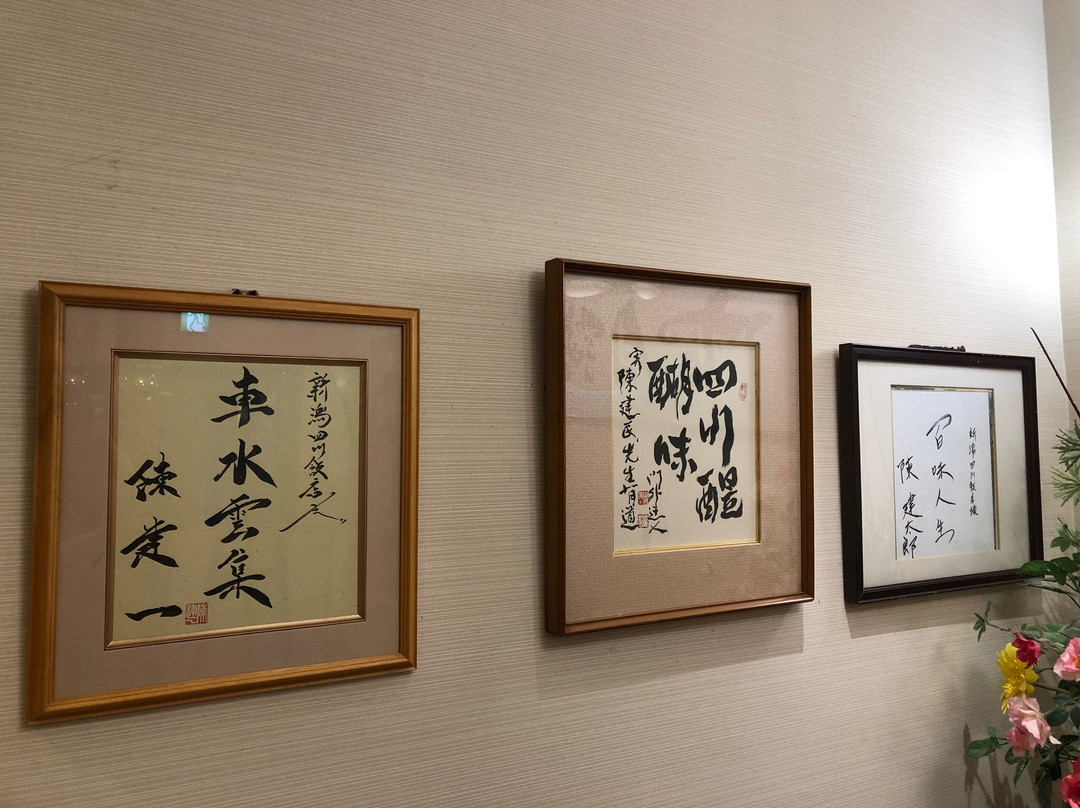 新潟四川飯店
車水雲集
陳建一
四川醍
醐味
陳建民先生有道
百味人生
新潟四川飯店様
陳建太郎